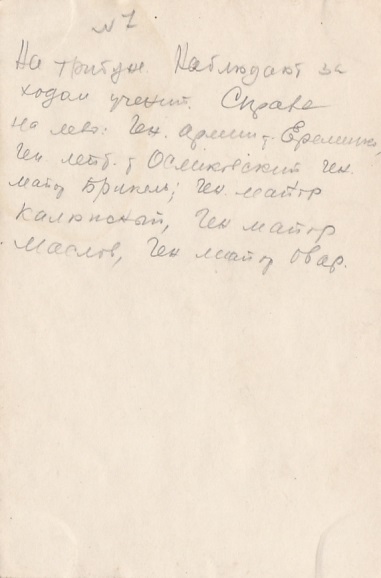 № 1
На трибуне. Наблюдают за
ходом учений. Справа
на лево: Ген. армии т. Еременко,
Ген лейт. т Осликовский Ген.
майор Брикель; Ген. майор
Ген майор
Маслов, Ген майор